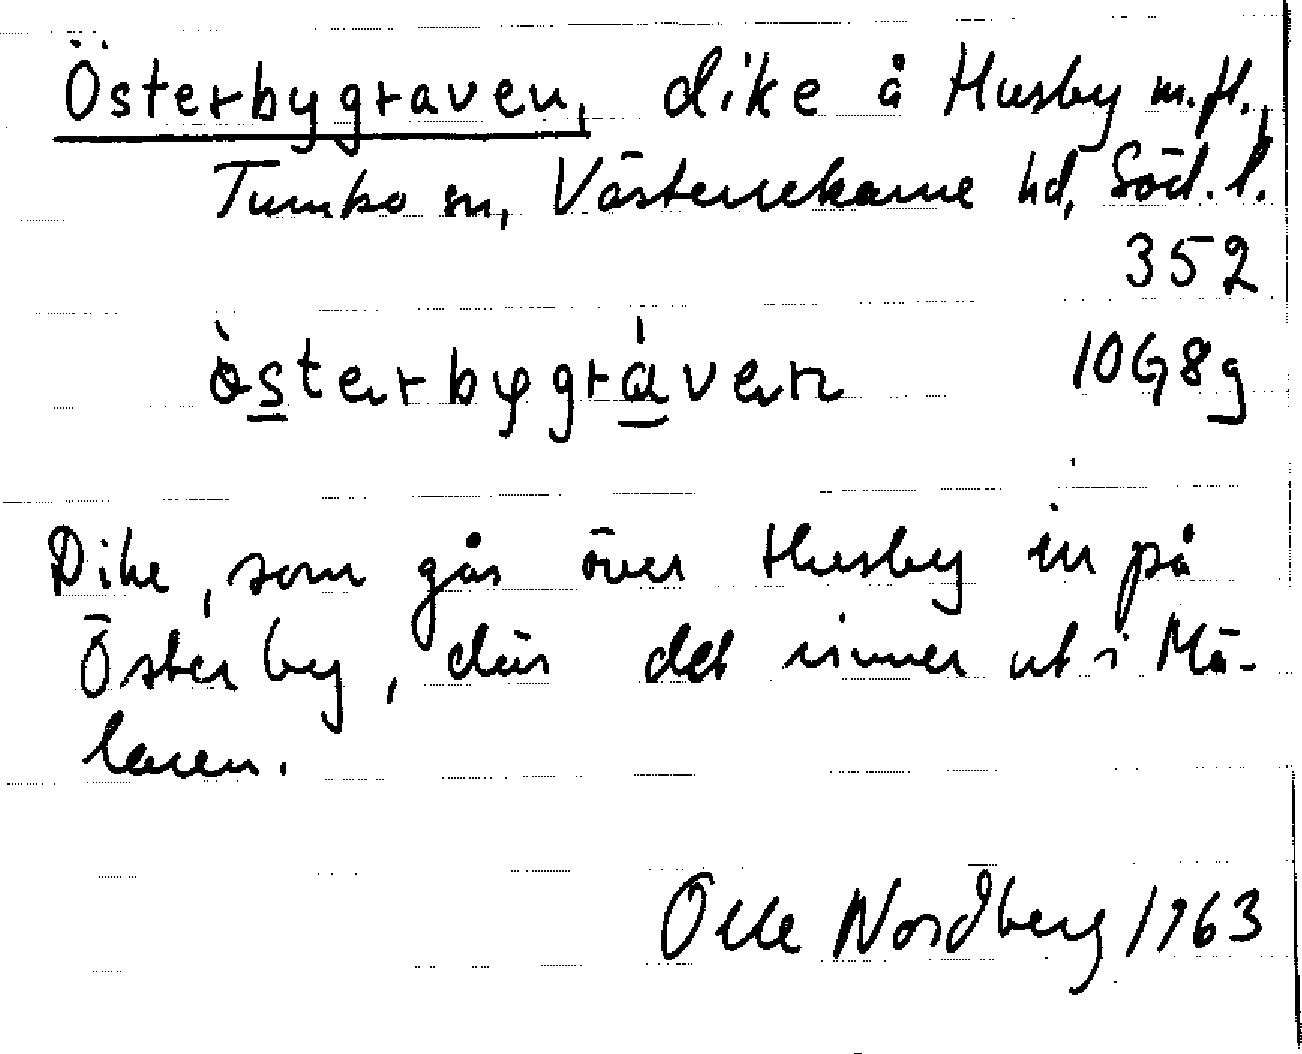 Österbygraven, dike å Husby m.fl.,
Tumbo sn, Västerrekarne hd, Söd. l.
352
ö̀sterbygráven 10G8g
Dike, som går över Husby in på
Österby, där det rinner ut i Mä-
laren.
Olle Nordberg 1963